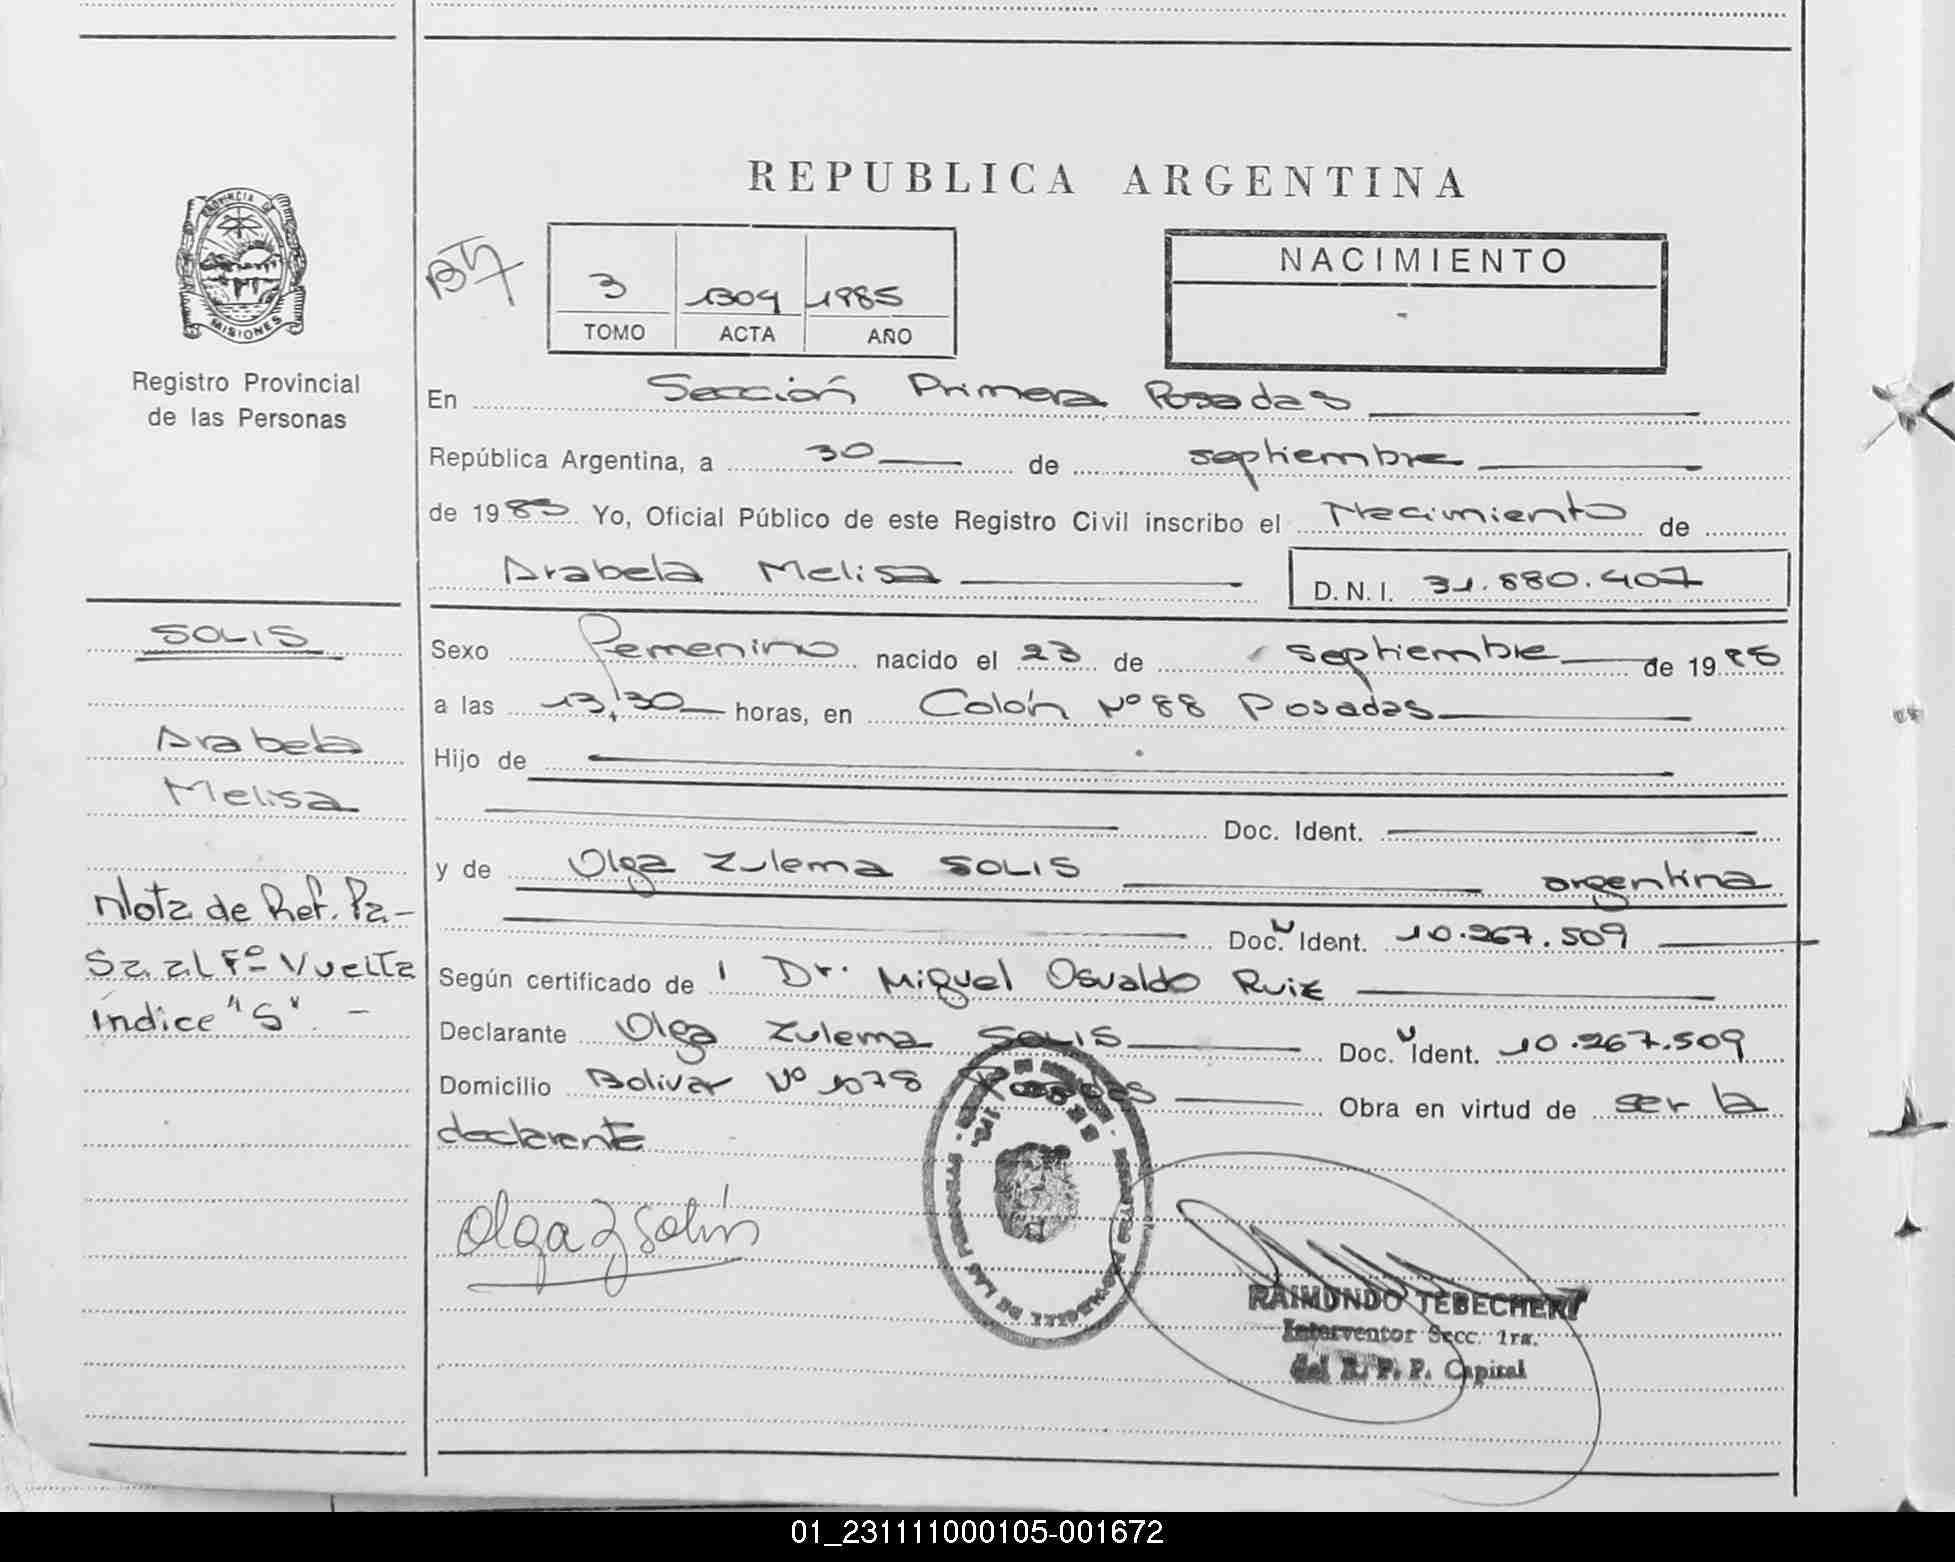 REPUBLICA ARGENTINA
PROVINCIA DE
MISIONES
Registro Provincial
de las Personas
3 1309 1985
TOMO ACTA AÑO
NACIMIENTO
En Sección Primera Posadas
República Argentina, a 30 de septiembre
de 1985 Yo, Oficial Público de este Registro Civil inscribo el Nacimiento de
Arabela Melisa D.N.I. 31.880.407
SOLIS
Arabela
Melisa
Nota de Ref. Pa-
sa al Fº Vuelta
índice "S". -
Sexo Femenino nacido el 23 de septiembre de 1985
a las 13,30 horas, en Colón Nº 88 Posadas
Hijo de
Doc. Ident.
y de Olga Zulema SOLIS argentina
Doc. Ident. 10.267.509
Según certificado de Dr. Miguel Osvaldo Ruiz
Declarante Olga Zulema SOLIS Doc. Ident. 10.267.509
Domicilio Bolivar Nº 1078 Posadas Obra en virtud de ser la
declarante
Olga Z Solís
RAIMUNDO TEBECHERY
Interventor Secc. 1ra.
del R. P. P. Capital
01_231111000105-001672